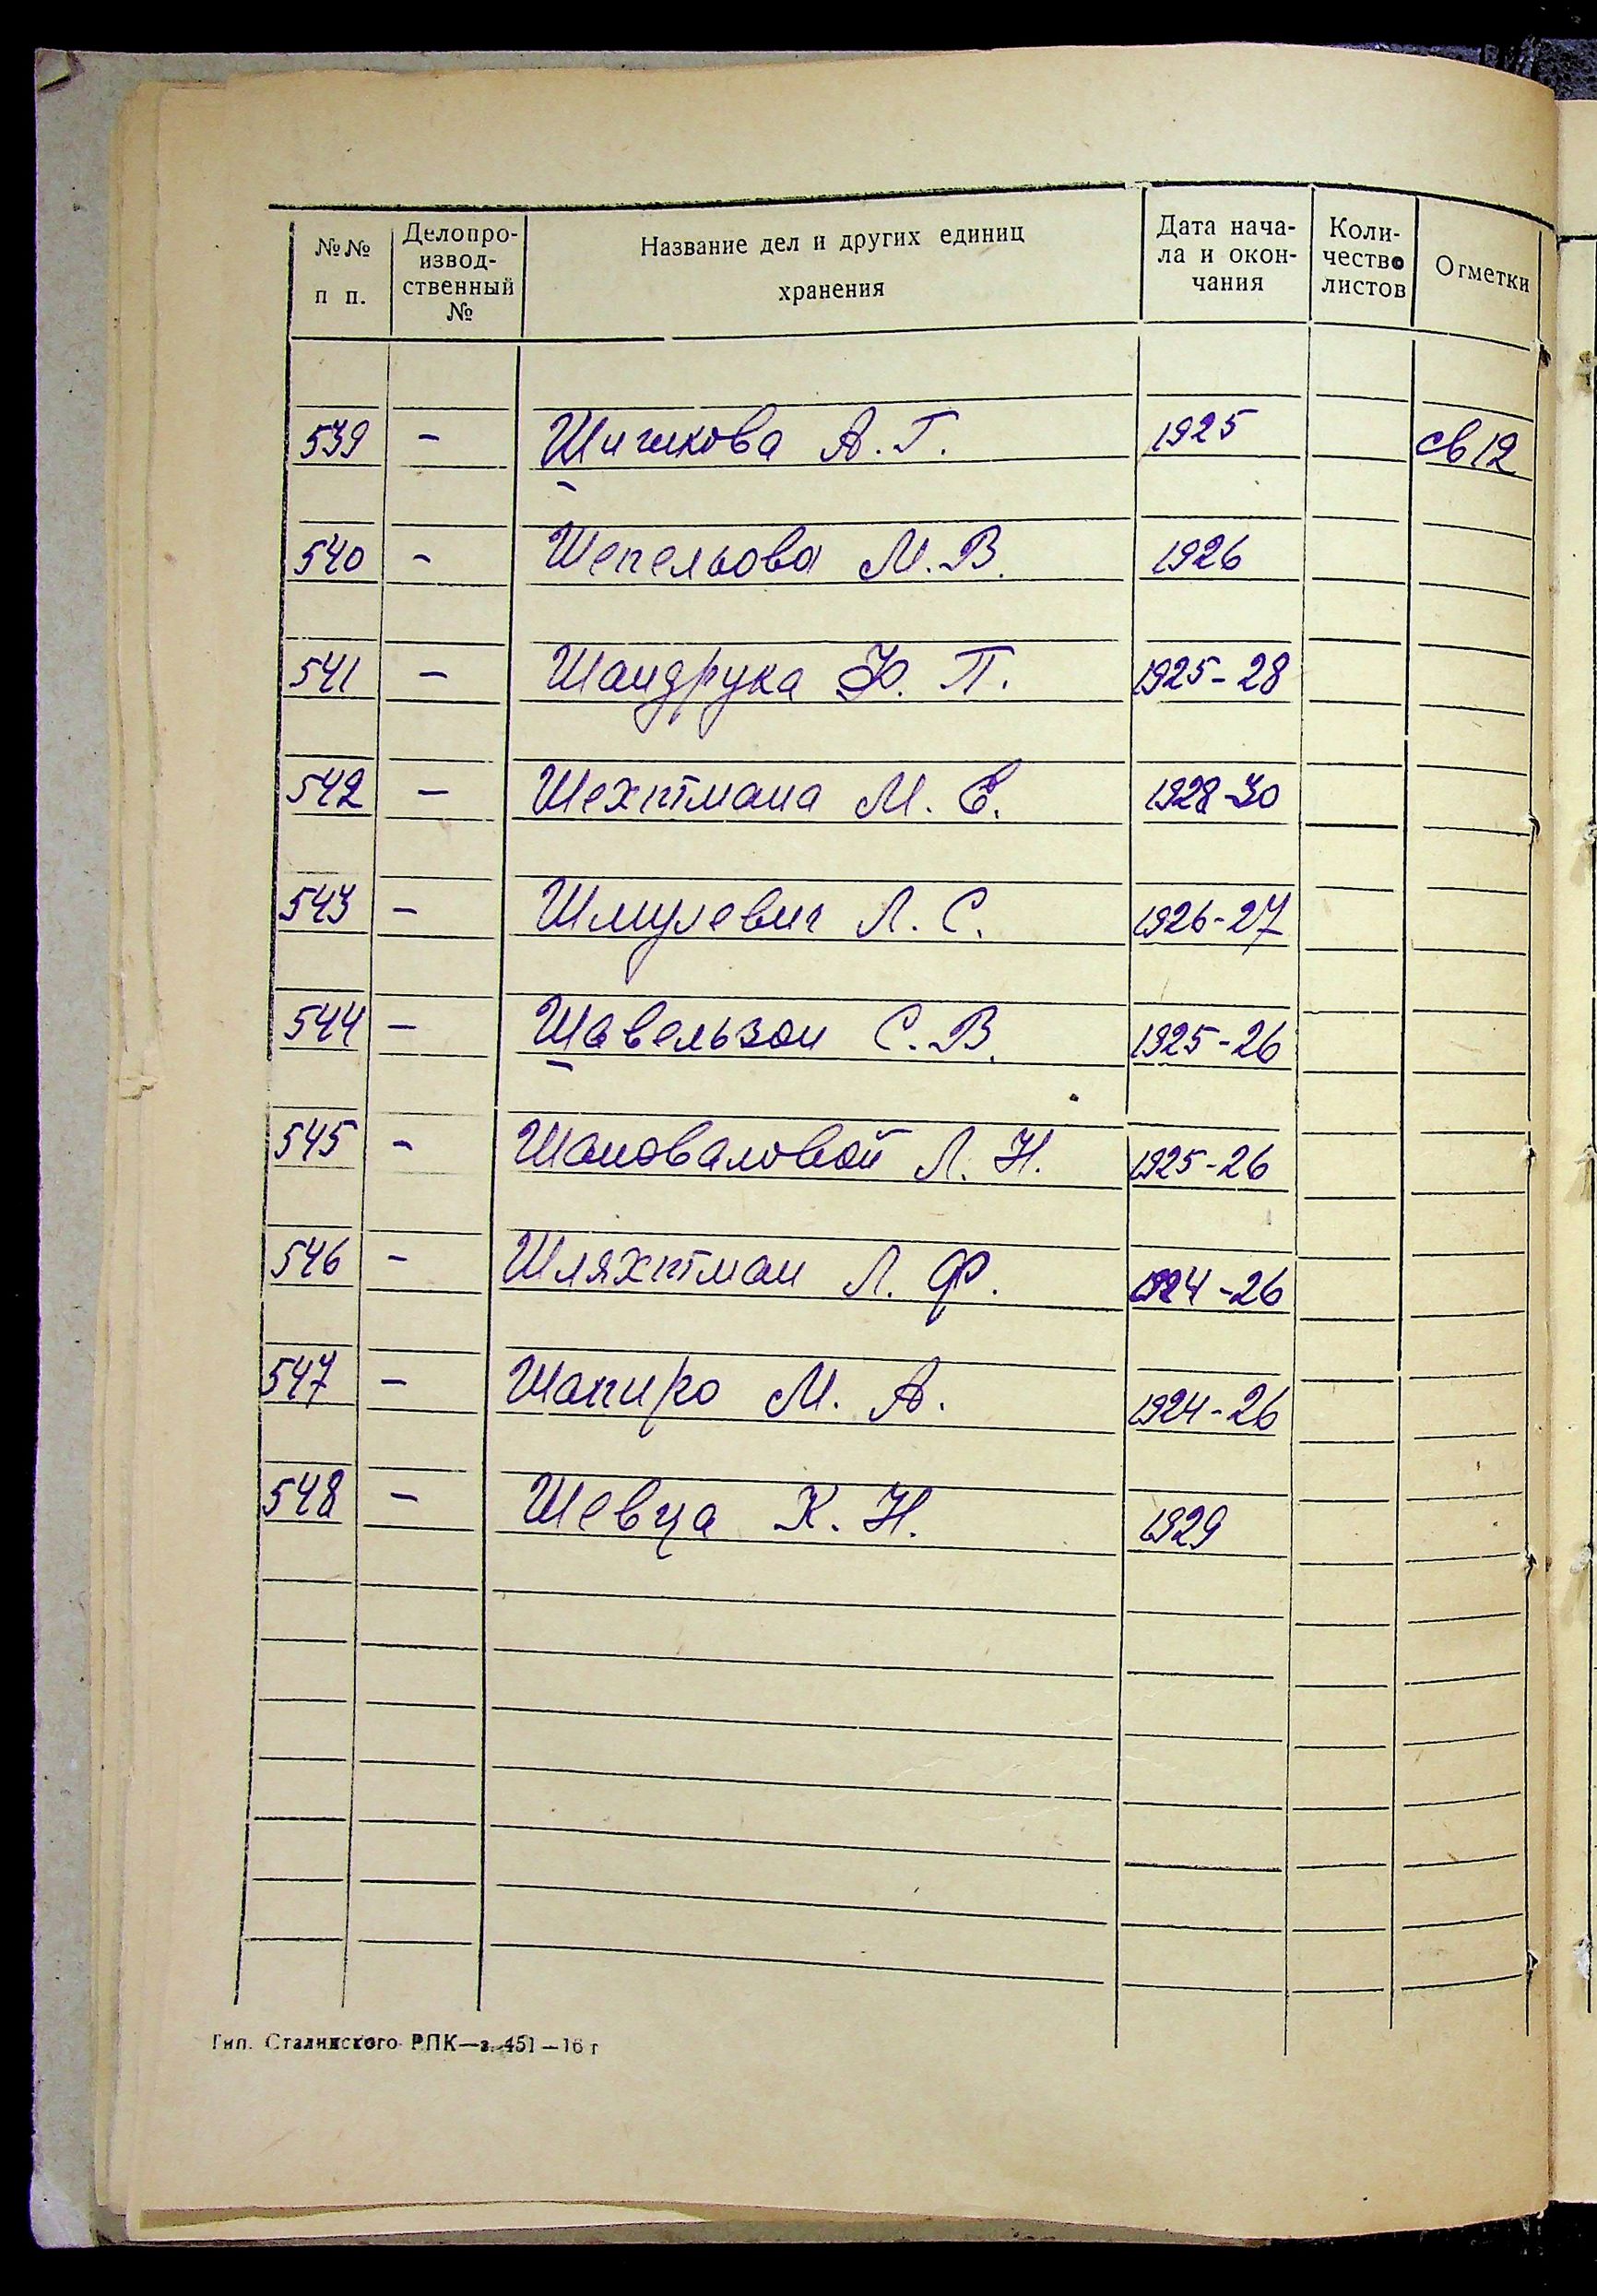 №№ п п. Делопро- извод- ственный № Название дел и других единиц хранения Дата нача- ла и окон- чания Коли- чество листов Отметки
539 - А. Г. 1925 св 12
540 - Шепельова М. В. 1926
541 - Шандрука Ф. П. 1925-28
542 - Шехтмана М. Е. 1928-30
543 - Шмулевич Л. С. 1926-27
544 - Шавельзон С. В. 1925-26
545 - Шаповаловой Л. Н. 1925-26
546 - Шляхтман Л. Ф. 1924-26
547 - Шапиро М. А. 1924-26
548 - Шевца К. Н. 1929
Тип. Сталинского РПК—з. 451—16 г